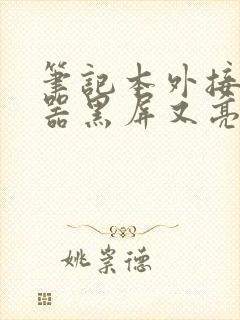 筆記本外接
器黑屏又亮
姚崇德